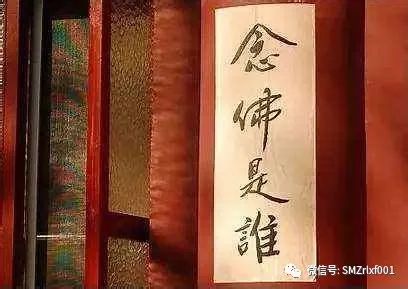 念佛是誰
微信号: SMZrlxf001